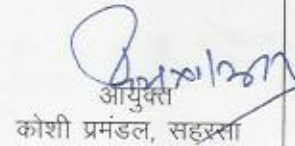 आयुक्त
कोशी प्रमंडल, सहरसा